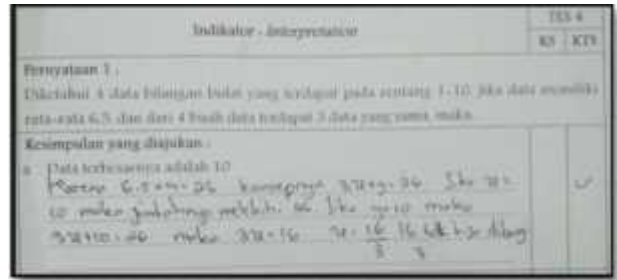 Indikator - Interpretation
TES 4
KS KTS
Pernyataan 1 .
Diketahui 4 data bilangan bulat yang terdapat pada rentang 1-10. Jika data memiliki
rata-rata 6.5 dan dari 4 buah data terdapat 3 data yang sama, maka
Kesimpulan yang diajukan :
a Data terbesarnya adalah 10
Karena 6.5×4=26 konsepnya 3x+y=26 Jika x=
10 maka jumlahnya melebihi 26 Jika y=10 maka
3x+10=26 maka 3x=16 x=16/3 16 tdk bisa dibagi
3